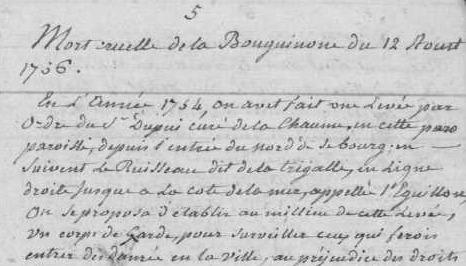 5
Mort cruelle de la Bouguinone du 12 Aoust
1756.
En L'Année 1754 on avet fait une Levée par
Ordre du Sr Dupuis curé de la Chaume, en cette
paroisse, depuis l'entrée du nord de se bourg, en
suivent Le Ruisseau dit de la trigalle, en Ligne
droite jusque a La cote de la mer, appellé l'Eguillon,
On se proposa d'établir au millieu de cette Levée,
un corps de Garde, pour surveiller ceux qui ferois
entrer des danrée en la ville, au préjudice des droits